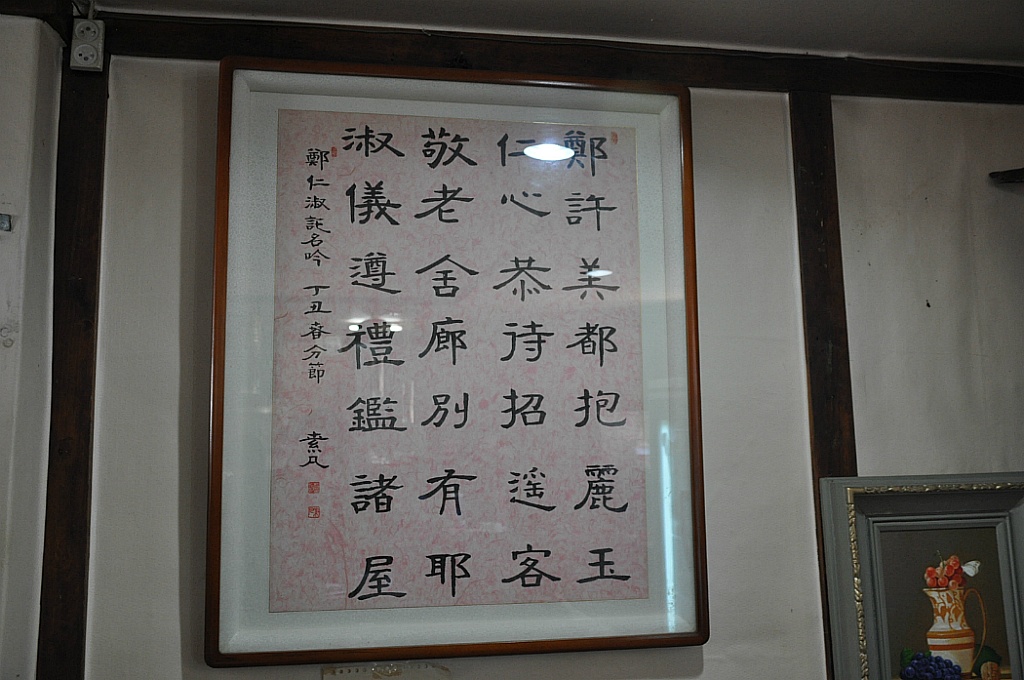 鄭許美都抱麗玉
仁心恭待招遥客
敬老舍廊別有耶
淑儀遵禮鑑諸屋
鄭仁淑託名吟 丁丑春分節
素凡